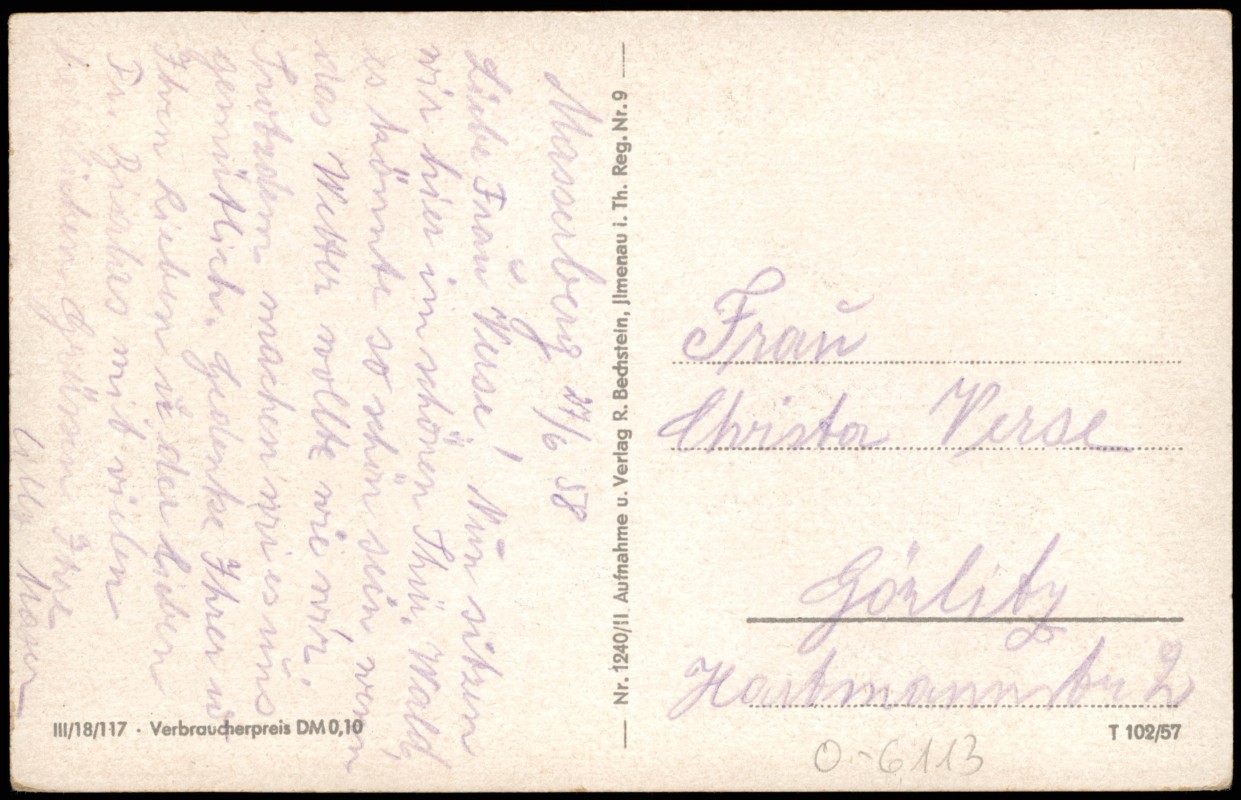 Masserberg 27/6 58
Liebe Frau Verse! Nun sitzen
wir hier im schönen Thü. Wald,
es könnte so schön sein, wenn
das Wetter wollte wie wir.
Trotzdem machen wir es uns
gemütlich. Gedenke Ihrer u.
Ihren Lieben u. der lieben
Fr. mit vielen
herzlichen Grüssen Ihre
Nr. 1240/II Aufnahme u. Verlag R. Bechstein, Jlmenau i. Th. Reg. Nr. 9
Frau
Christa Verse
Görlitz
Hartmannstr 2
III/18/117 · Verbraucherpreis DM 0,10
T 102/57
O-6113